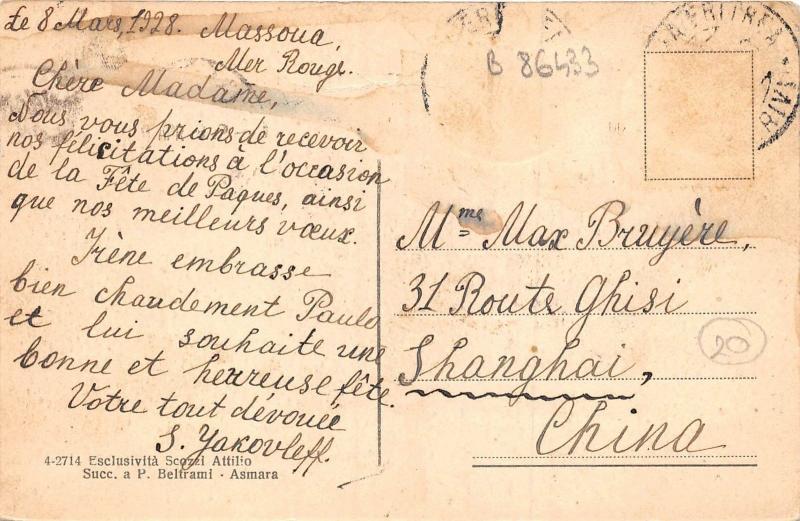 Le 8 Mars, 1928. Massoua,
Mer Rouge.
Chère Madame,
Nous vous prions de recevoir
nos félicitations à l'occasion
de la Fête de Paques, ainsi
que nos meilleurs vœux.
Irène embrasse
bien chaudement Paulo
et lui souhaite une
bonne et herreuse fête.
Votre tout dévouée
S. Yakovleff.
4-2714 Esclusività Scozzi Attilio
Succ. a P. Beltrami - Asmara
B 86433
ERITREA
Mme Max Bruyère,
31 Route Ghisi
Shanghai,
China
20